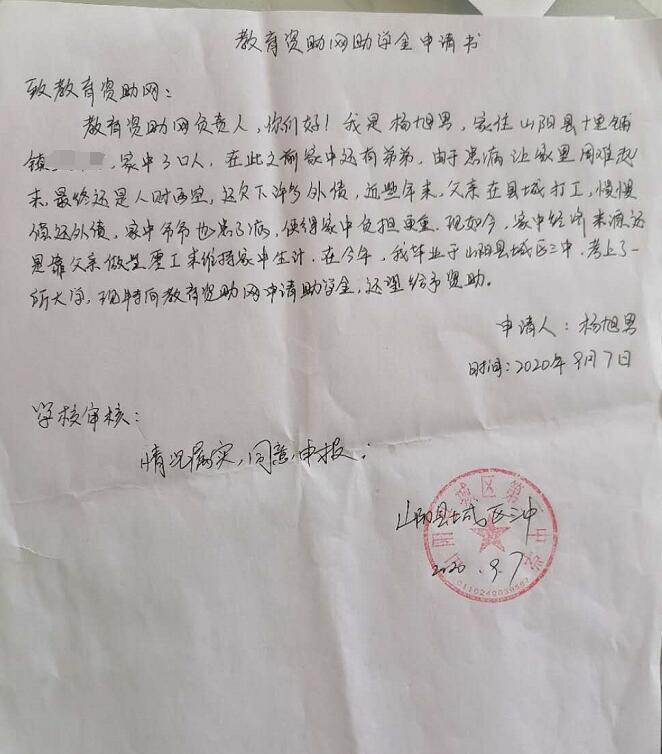 教育资助网助学金申请书
致教育资助网：
教育资助网负责人，你们好！我是杨旭男，家住山阳县十里铺
镇，家中3口人，在此之前家中还有弟弟，由于患病让家里困难起
来，最终还是人财两空，还欠下许多外债，近些年来，父亲在县城打工，慢慢
偿还外债，家中爷爷也患了病，使得家中负担更重。现如今，家中经济来源还
是靠父亲做些重工来维持家中生计。在今年，我毕业于山阳县城区三中，考上了一
所大学，现特向教育资助网申请助学金，还望给予资助。
申请人：杨旭男
时间：2020年9月7日
学校审核：
情况属实，同意申报；
山阳县城区三中
2020.9.7
山阳县城区第